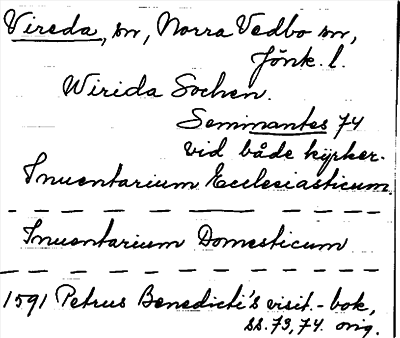 Vireda, sn, Norra Vedbo sn,
Jönk. l.
Wirida Sochen.
Seminantes 74
vid både kyrker.
Inuentarium Ecclesiasticum
— — — — — — — — —
Inuentarium Domesticum
— — — — — — — — —
1591 Petrus Benedicti's visit.-bok,
ss. 73, 74. orig.